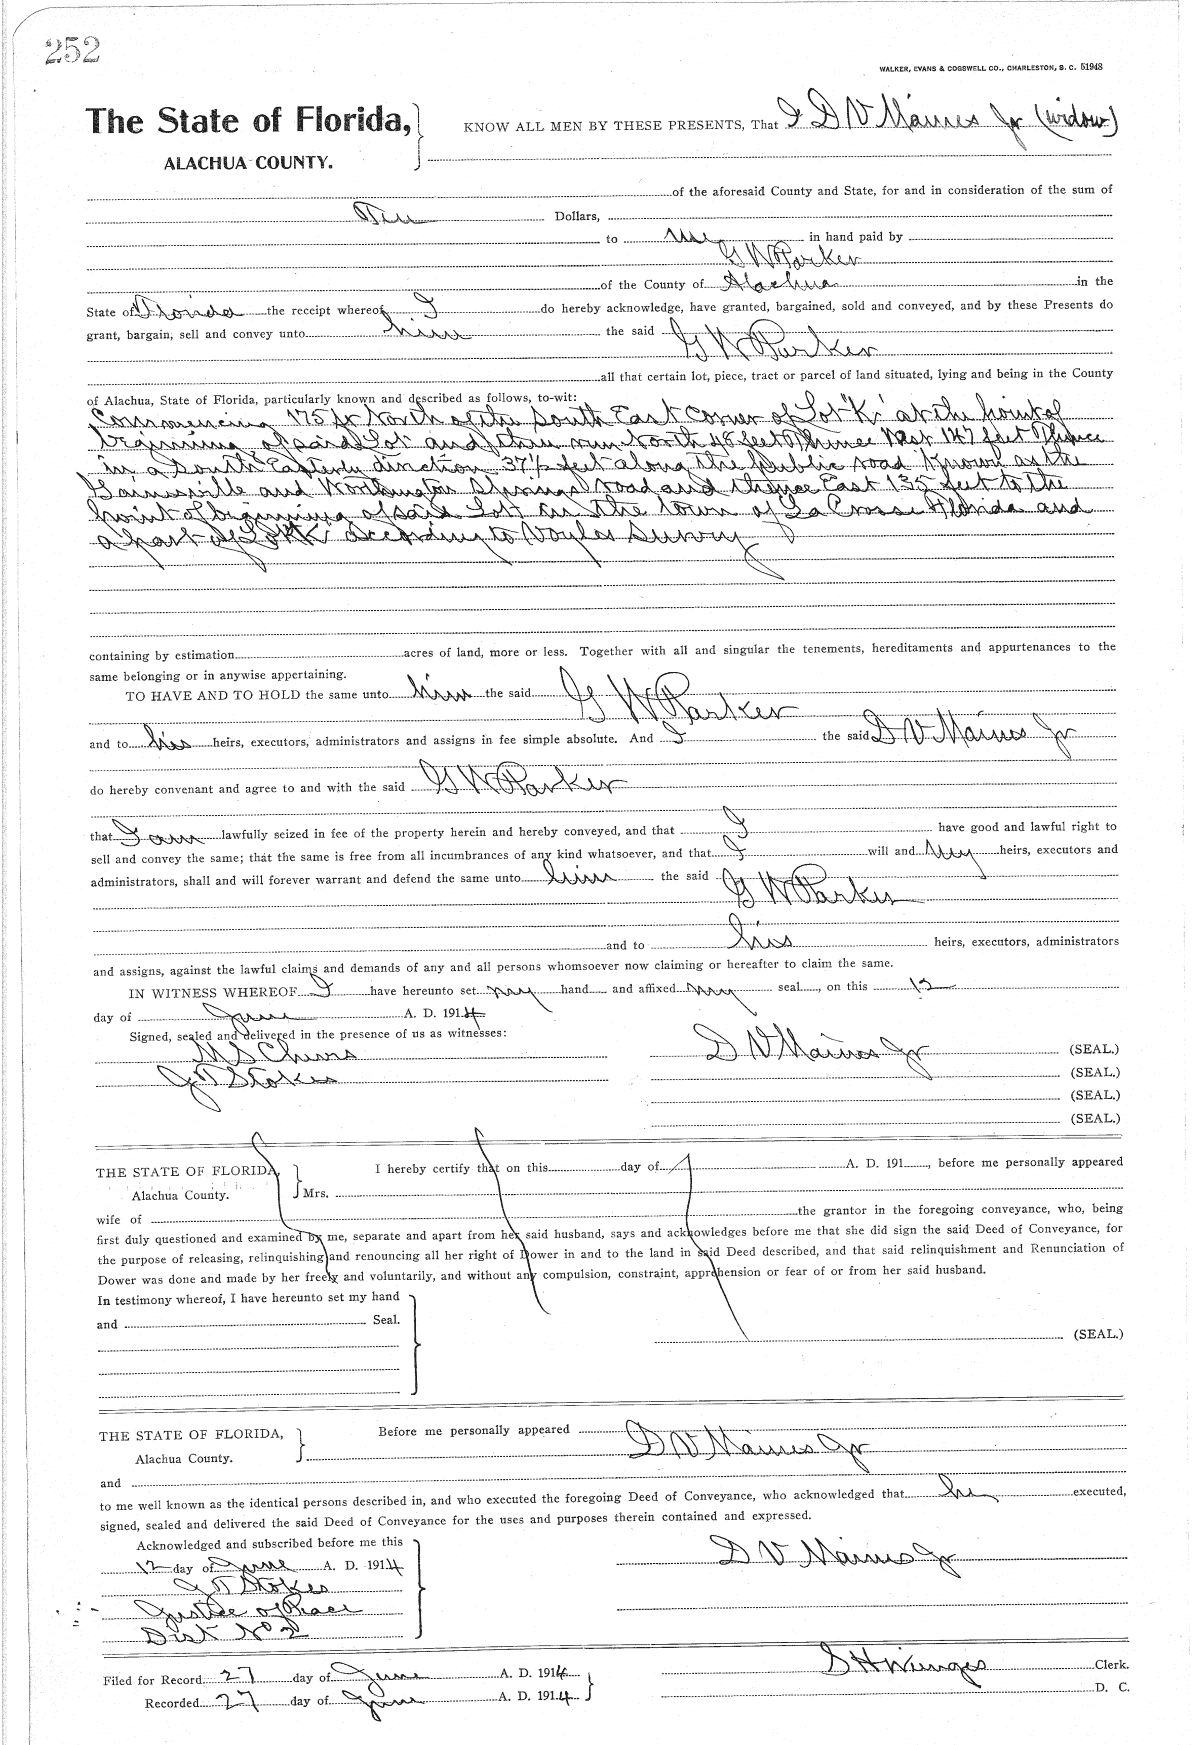 252
WALKER, EVANS & COGSWELL CO., CHARLESTON, S. C. 51948
The State of Florida,
ALACHUA COUNTY.
KNOW ALL MEN BY THESE PRESENTS, That I D V Maines Jr (widow)
of the aforesaid County and State, for and in consideration of the sum of
Ten Dollars,
to me in hand paid by
G W Parker
of the County of Alachua in the
State of Florida the receipt whereof I do hereby acknowledge, have granted, bargained, sold and conveyed, and by these Presents do
grant, bargain, sell and convey unto him the said G W Parker
all that certain lot, piece, tract or parcel of land situated, lying and being in the County
of Alachua, State of Florida, particularly known and described as follows, to-wit:
Commencing 175 ft North of the South East Corner of Lot "K" at the point of
beginning of said Lot and then run North 48 feet Thence West 147 feet Thence
in a South Easterly direction 37½ feet along the public road known as the
Gainesville and Worthington Springs road and thence East 135 feet to the
point of beginning of said Lot in the town of La Crosse Florida and
a part of Lot K according to Voyles Survey
containing by estimation acres of land, more or less. Together with all and singular the tenements, hereditaments and appurtenances to the
same belonging or in anywise appertaining.
TO HAVE AND TO HOLD the same unto him the said G W Parker
and to his heirs, executors, administrators and assigns in fee simple absolute. And I the said D V Maines Jr
do hereby convenant and agree to and with the said G W Parker
that I am lawfully seized in fee of the property herein and hereby conveyed, and that I have good and lawful right to
sell and convey the same; that the same is free from all incumbrances of any kind whatsoever, and that I will and my heirs, executors and
administrators, shall and will forever warrant and defend the same unto him the said G W Parker
and to his heirs, executors, administrators
and assigns, against the lawful claims and demands of any and all persons whomsoever now claiming or hereafter to claim the same.
IN WITNESS WHEREOF I have hereunto set my hand and affixed my seal, on this 12
day of June A. D. 1914
Signed, sealed and delivered in the presence of us as witnesses:
M S Cheves D V Maines Jr (SEAL.)
J T Stokes (SEAL.)
(SEAL.)
(SEAL.)
THE STATE OF FLORIDA,
Alachua County.
I hereby certify that on this day of A. D. 191, before me personally appeared
Mrs.
wife of the grantor in the foregoing conveyance, who, being
first duly questioned and examined by me, separate and apart from her said husband, says and acknowledges before me that she did sign the said Deed of Conveyance, for
the purpose of releasing, relinquishing and renouncing all her right of Dower in and to the land in said Deed described, and that said relinquishment and Renunciation of
Dower was done and made by her freely and voluntarily, and without any compulsion, constraint, apprehension or fear of or from her said husband.
In testimony whereof, I have hereunto set my hand
and Seal.
(SEAL.)
THE STATE OF FLORIDA,
Alachua County.
Before me personally appeared D V Maines Jr
and
to me well known as the identical persons described in, and who executed the foregoing Deed of Conveyance, who acknowledged that he executed,
signed, sealed and delivered the said Deed of Conveyance for the uses and purposes therein contained and expressed.
Acknowledged and subscribed before me this
12 day of June A. D. 1914
D V Maines Jr
J T Stokes
Justice of Peace
Dist No 2
Filed for Record 27 day of June A. D. 1914
S H Wienges Clerk.
Recorded 27 day of June A. D. 1914
D. C.